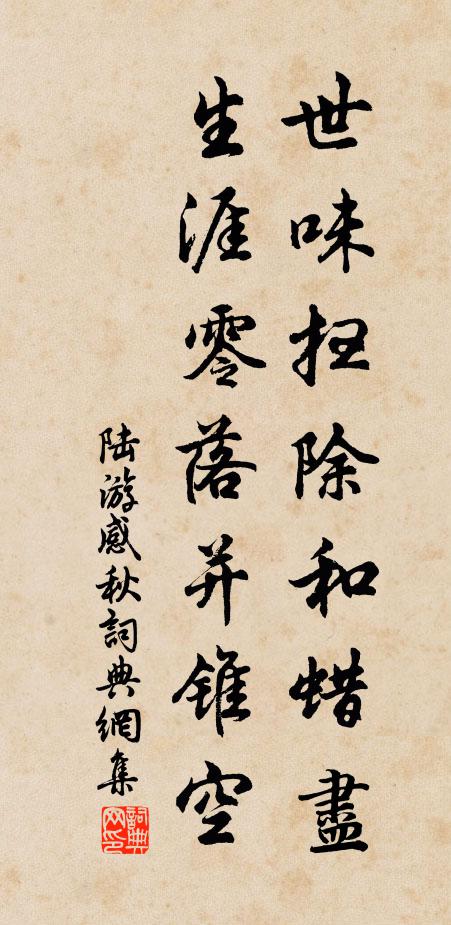 世味扫除和蜡盡
生涯零落并锥空
陆游感秋詞典網集
詞典网印